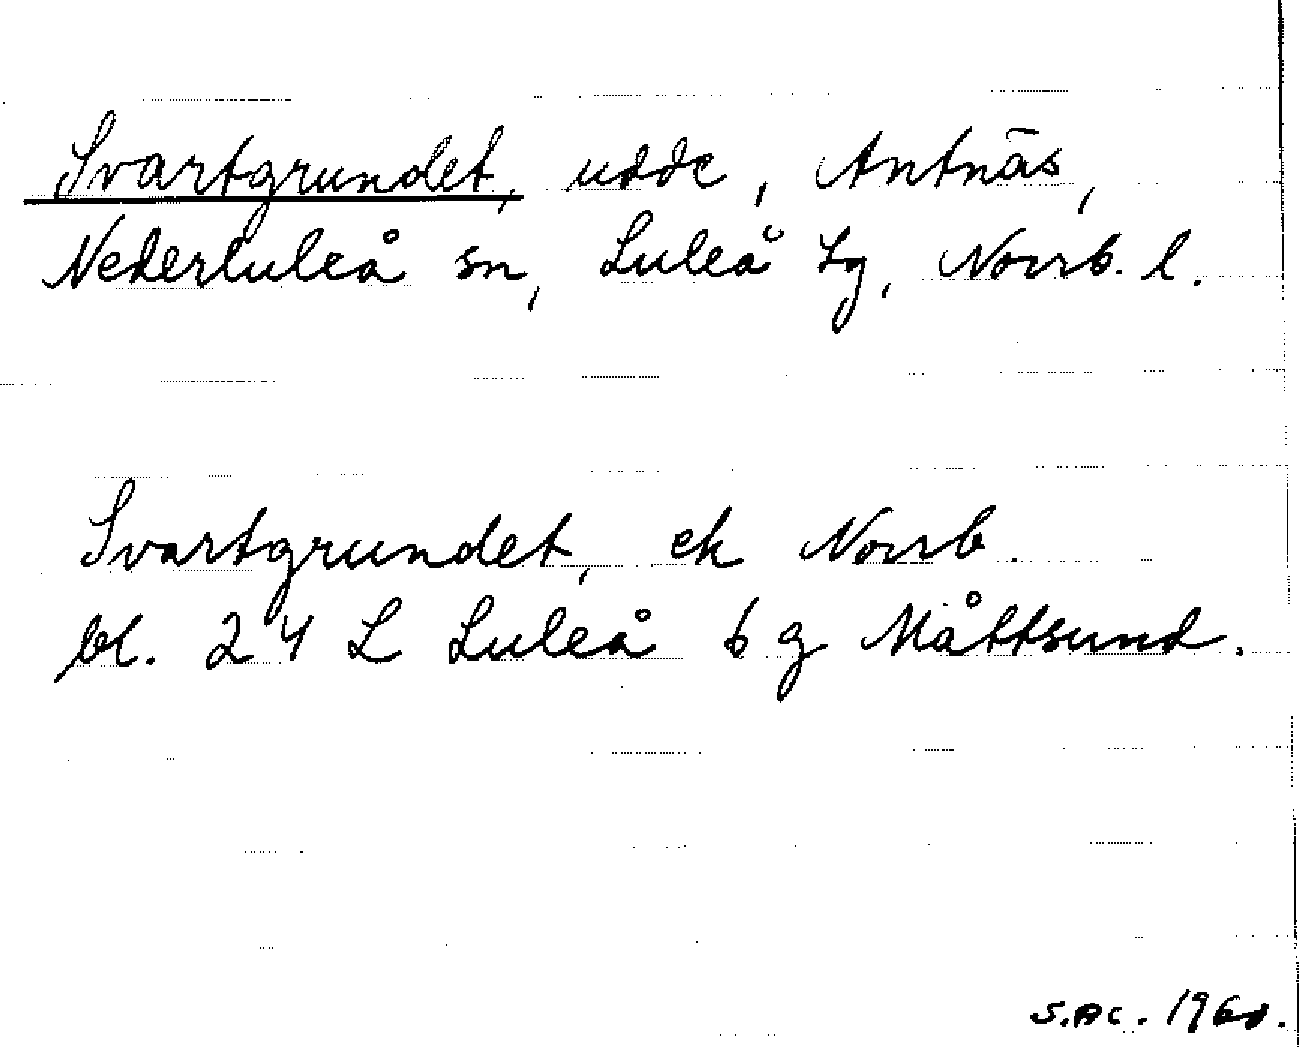 Svartgrundet, udde, Antnäs,
Nederluleå sn, Luleå tg, Norrb. l.
Svartgrundet, ek Norrb.
bl. 24 L Luleå 6 g Måttsund.